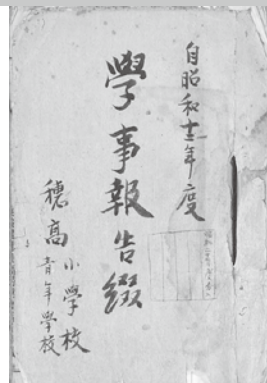 自昭和十三年度
學事報告綴
穂高小學校
青年學校